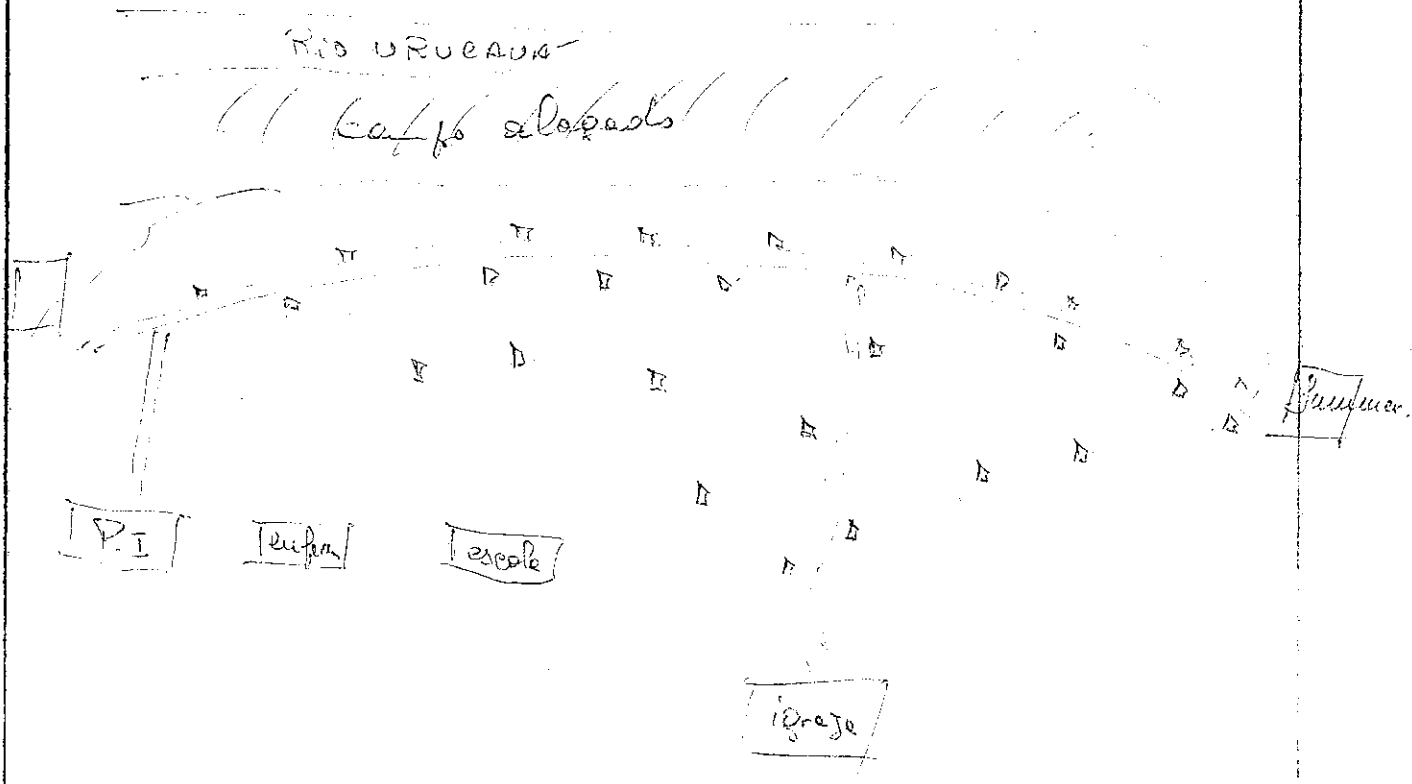 RIO URUCAUA
Campo alagado
P.I
enferm
escola
igreja